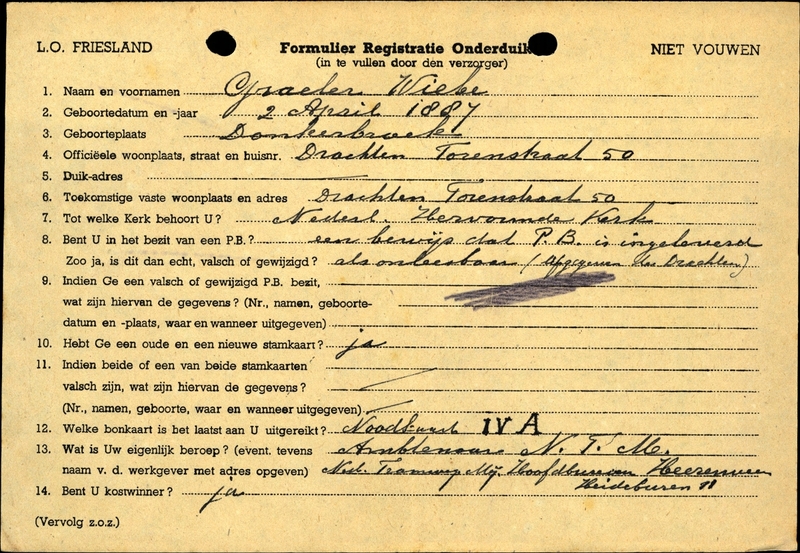 L.O. FRIESLAND
Formulier Registratie Onderduik
NIET VOUWEN
(in te vullen door den verzorger)
1. Naam en voornamen Wiebe
2. Geboortedatum en -jaar 2 April 1887
3. Geboorteplaats Donkerbroek
4. Officiëele woonplaats, straat en huisnr. Drachten Torenstraat 50
5. Duik-adres
6. Toekomstige vaste woonplaats en adres Drachten Torenstraat 50
7. Tot welke Kerk behoort U? Nederl. Hervormde Kerk
8. Bent U in het bezit van een P.B.? een bewijs dat P.B. is ingeleverd
Zoo ja, is dit dan echt, valsch of gewijzigd? als onleesbaar (Afgegeven Drachten)
9. Indien Ge een valsch of gewijzigd P.B. bezit,
wat zijn hiervan de gegevens? (Nr., namen, geboorte-
datum en -plaats, waar en wanneer uitgegeven)
10. Hebt Ge een oude en een nieuwe stamkaart? ja
11. Indien beide of een van beide stamkaarten
valsch zijn, wat zijn hiervan de gegevens?
(Nr., namen, geboorte, waar en wanneer uitgegeven)
12. Welke bonkaart is het laatst aan U uitgereikt? Noodkaart IV A
13. Wat is Uw eigenlijk beroep? (event. tevens Ambtenaar N.T.M.
naam v. d. werkgever met adres opgeven) Ned. Tramweg Mij. Hoofdbureau Heerenveen
Heideburen 11
14. Bent U kostwinner? ja
(Vervolg z.o.z.)